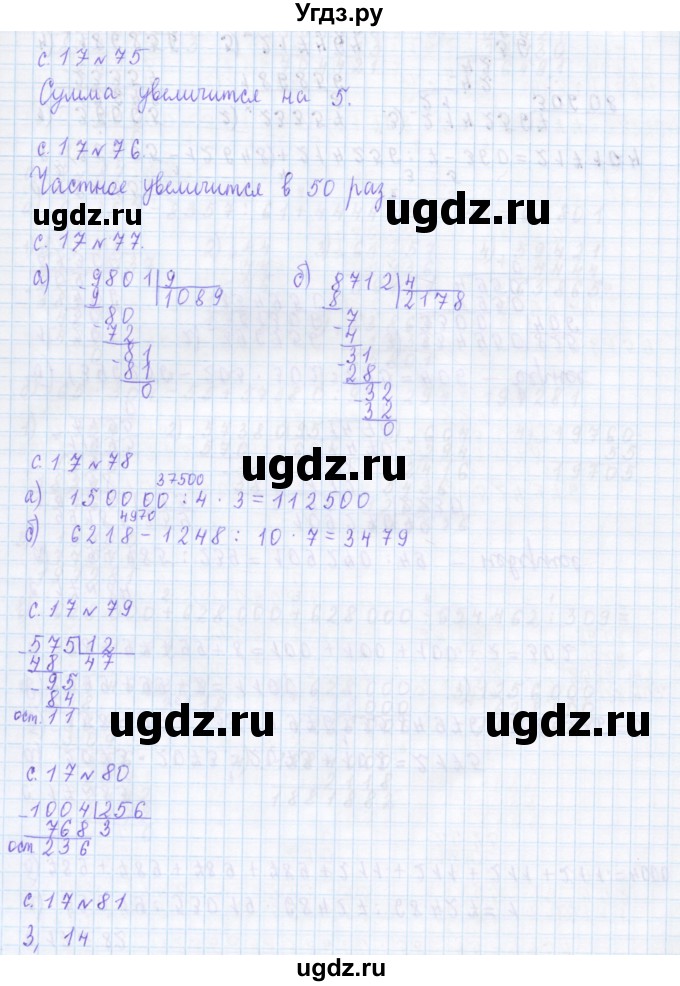 Угдз.ру
с. 17 № 75
Сумма увеличится на 5.
с. 17 № 76.
Частное увеличится в 50 раз.
ugdz.ru
ugdz.ru
с. 17 № 77.
а) - 9801 | 9
9 1089
- 80
72
- 81
81
0
б) 8712 | 4
8 2178
- 7
4
- 31
28
- 32
32
0
ugdz.ru
с. 17 № 78
37500
а) 150000 : 4 · 3 = 112500
4970
б) 6218 - 1248 : 10 · 7 = 3479
с. 17 № 79
- 575 | 12
48 47
- 95
84
ост. 11
ugdz.ru
ugdz.ru
с. 17 № 80
- 1004 | 256
768 3
ост 236
с. 17 № 81
3, 14
ugdz.ru